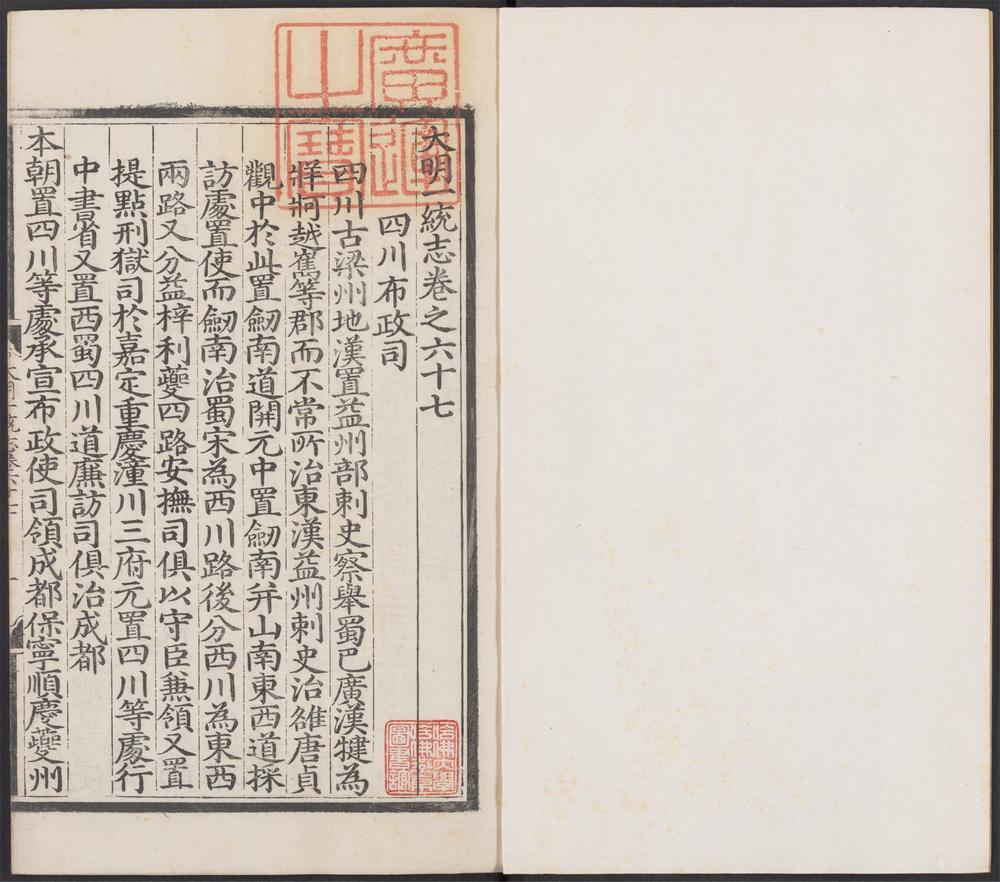 大明一統志卷之六十七
四川布政司
四川古梁州地漢置益州部刺史察舉蜀巴廣漢犍為
牂牁越嶲等郡而不常所治東漢益州刺史治雒唐貞
觀中於此置劒南道開元中置劒南并山南東西道採
訪處置使而劒南治蜀宋為西川路後分西川為東西
兩路又分益梓利夔四路安撫司俱以守臣兼領又置
提點刑獄司於嘉定重慶潼川三府元置四川等處行
中書省又置西蜀四川道廉訪司俱治成都
本朝置四川等處承宣布政使司領成都保寧順慶夔州
廣運之寶
哈佛大學哈佛燕京圖書館